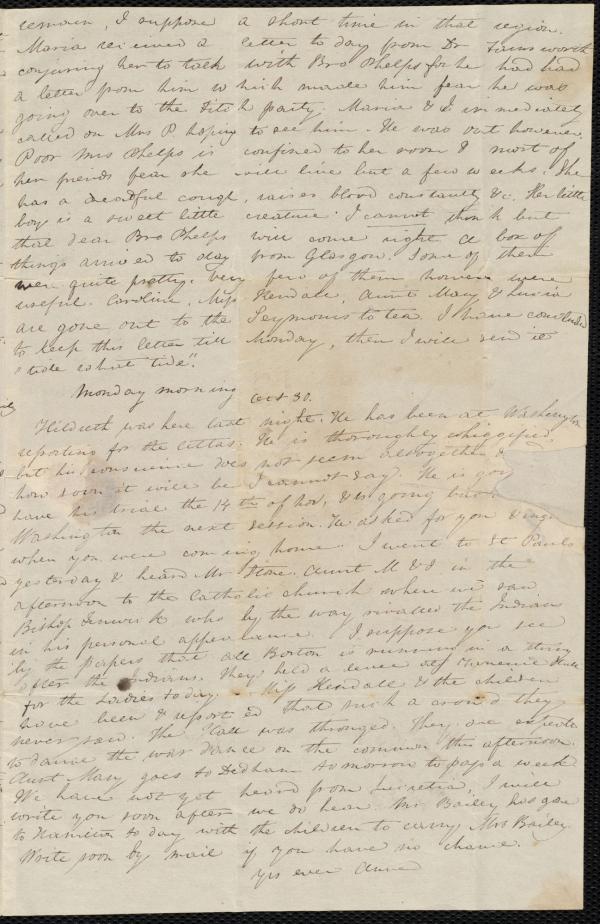 remain, I suppose a short time in that region.
Maria received a letter to day from Dr Farnsworth
conjuring her to talk with Bro Phelps for he had had
a letter from him which made him fear he was
going over to the Fitch party. Maria & I immediately
called on Mrs P. hoping to see him. He was out however.
Poor Mrs Phelps is confined to her room & most of
her friends fear she will live but a few weeks. She
has a dreadful cough, raises blood constantly &c. Her little
boy is a sweet little creature. I cannot think but
that dear Bro Phelps will come right. A box of
things arrived to day from Glasgow. Some of them
were quite pretty. Very few of them however were
useful. Caroline, Miss Kendall, Aunt Mary & Lucia
are gone out to the Seymours to tea. I have concluded
to keep this letter till Monday, then I will send it
"tide what tide".
Monday morning Oct 30.
Hildreth was here last night. He has been at Washington
reporting for the Atlas. He is thoroughly whiggified,
but his conscience does not seem altogether
how soon it will be I cannot say. He is
have his trial the 14th of Nov, & is going back
Washington the next session. He asked for you &
when you were coming home. I went to St Pauls
yesterday & heard Mr Stone. Aunt M & I in the
afternoon to the Catholic church where we saw
Bishop Fenwick who by the way rivalled the Indian
in his personal appearance. I suppose you see
by the papers that all Boston is running in a
after the Indians. They held a levee at Faneuil Hall
for the Ladies to day. Miss Kendall & the children
have been & report ed that such a crowd they
never saw. The Hall was thronged. They are expected
to dance the war dance on the common this afternoon.
Aunt Mary goes to Dedham tomorrow to pass a week
We have not yet heard from Lucretia, I will
write you soon after we do hear. Mr Bailey has gone
to Hamilton to day with the children to carry Mrs Bailey.
Write soon by mail if you have no chance.
Yrs ever Anne